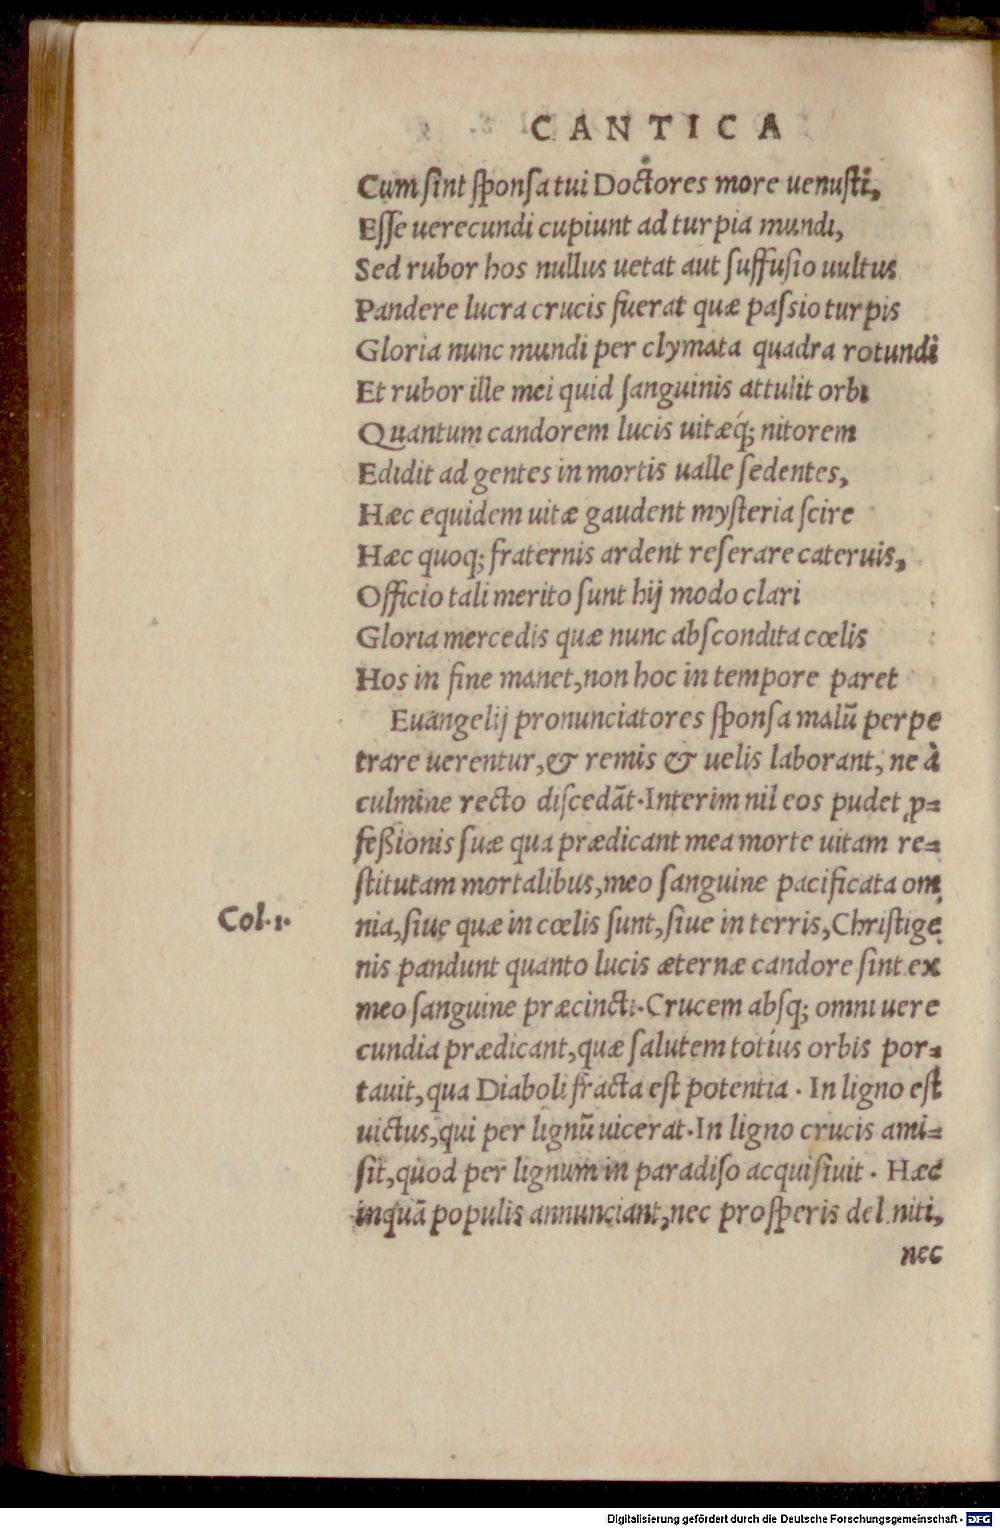 CANTICA
Cum sint sponsa tui Doctores more uenusti,
Esse uerecundi cupiunt ad turpia mundi,
Sed rubor hos nullus uetat aut suffusio uultus
Pandere lucra crucis fuerat quæ passio turpis
Gloria nunc mundi per clymata quadra rotundi
Et rubor ille mei quid sanguinis attulit orbi
Quantum candorem lucis uitæq́; nitorem
Edidit ad gentes in mortis ualle sedentes,
Hæc equidem uitæ gaudent mysteria scire
Hæc quoq; fraternis ardent reserare cateruis,
Officio tali merito sunt hij modo clari
Gloria mercedis quæ nunc abscondita cœlis
Hos in fine manet, non hoc in tempore paret
Euangelij pronunciatores sponsa malũ perpe
trare uerentur, & remis & uelis laborant, ne à
culmine recto discedãt. Interim nil eos pudet ꝓ=
feßionis suæ qua prædicant mea morte uitam re=
stitutam mortalibus, meo sanguine pacificata om
Col. 1.
nia, siue quæ in cœlis sunt, siue in terris, Christige
nis pandunt quanto lucis æternæ candore sint ex
meo sanguine præcincti. Crucem absq; omni uere
cundia prædicant, quæ salutem totíus orbis por=
tauit, qua Diaboli fracta est potentia. In ligno est
uictus, qui per lignũ uicerat. In ligno crucis ami=
sit, quod per lignum in paradiso acquisiuit. Hæc
inquã populis annunciant, nec prosperis deliniti,
nec
Digitalisierung gefördert durch die Deutsche Forschungsgemeinschaft - DFG